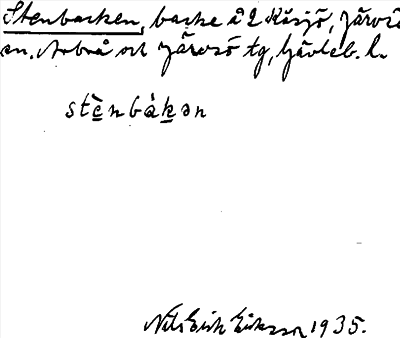 Stenbacken, backe å 2 Kåsjö, Järvsö
sn. Arbrå och Järvsö tg, Gävleb. l.
stè̱nbàḵən
Nils Erik Eriksson 1935.